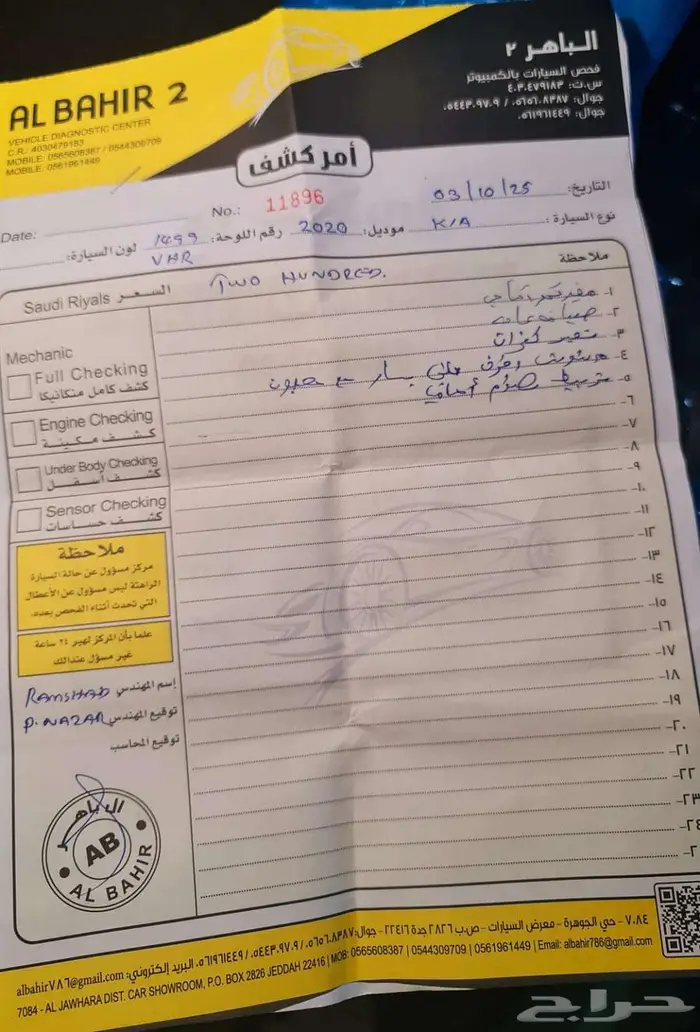 AL BAHIR 2
VEHICLE DIAGNOSTIC CENTER
C.R.: 4030479183
MOBILE: 0565608387 / 0544309709
MOBILE: 0561961449
الباهر ٢
فحص السيارات بالكمبيوتر
س.ت: ٤٠٣٠٤٧٩١٨٣
جوال: ٠٥٦٥٦٠٨٣٨٧ / ٠٥٤٤٣٠٩٧٠٩
جوال: ٠٥٦١٩٦١٤٤٩
أمر كشف
No.: 11896
التاريخ: 03/10/25
Date:
نوع السيارة: KIA موديل: 2020 رقم اللوحة: 1499 VHR لون السيارة:
Saudi Riyals السعر TWO HUNDRED.
ملاحظة
Mechanic
Full Checking
كشف كامل منكانيكا
Engine Checking
كشف مكينة
Under Body Checking
كشف أسفل
Sensor Checking
كشف حساسات
١-
٢- صيانة عامه
٣- تغير كفرات
٤-
٥- صدام أمامي
٦-
٧-
٨-
٩-
١٠-
١١-
١٢-
١٣-
١٤-
١٥-
١٦-
١٧-
١٨-
١٩-
٢٠-
٢١-
٢٢-
٢٣-
٢٤-
٢-
ملاحظة
مركز مسؤول عن حالة السيارة
الراهنة ليس مسؤول عن الأعطال
التي تحدث أثناء الفحص بعده.
علما بأن المركز لهير ٢٤ ساعة
غير مسؤل عندالك
إسم المهندس RAMSHAD
توقيع المهندس P. NAZAR
توقيع المحاسب
الباهر
AB
AL BAHIR
٧٠٨٤ - حي الجوهرة - معرض السيارات - ص.ب ٢٨٢٦ جدة ٢٢٤١٦ - جوال: ٠٥٦٥٦٠٨٣٨٧ / ٠٥٤٤٣٠٩٧٠٩ / ٠٥٦١٩٦١٤٤٩ البريد إلكتروني: albahir٧٨٦@gmail.com
7084 - AL JAWHARA DIST. CAR SHOWROOM, P.O. BOX 2826 JEDDAH 22416 | MOB: 0565608387 | 0544309709 | 0561961449 | Email: albahir786@gmail.com
حراج